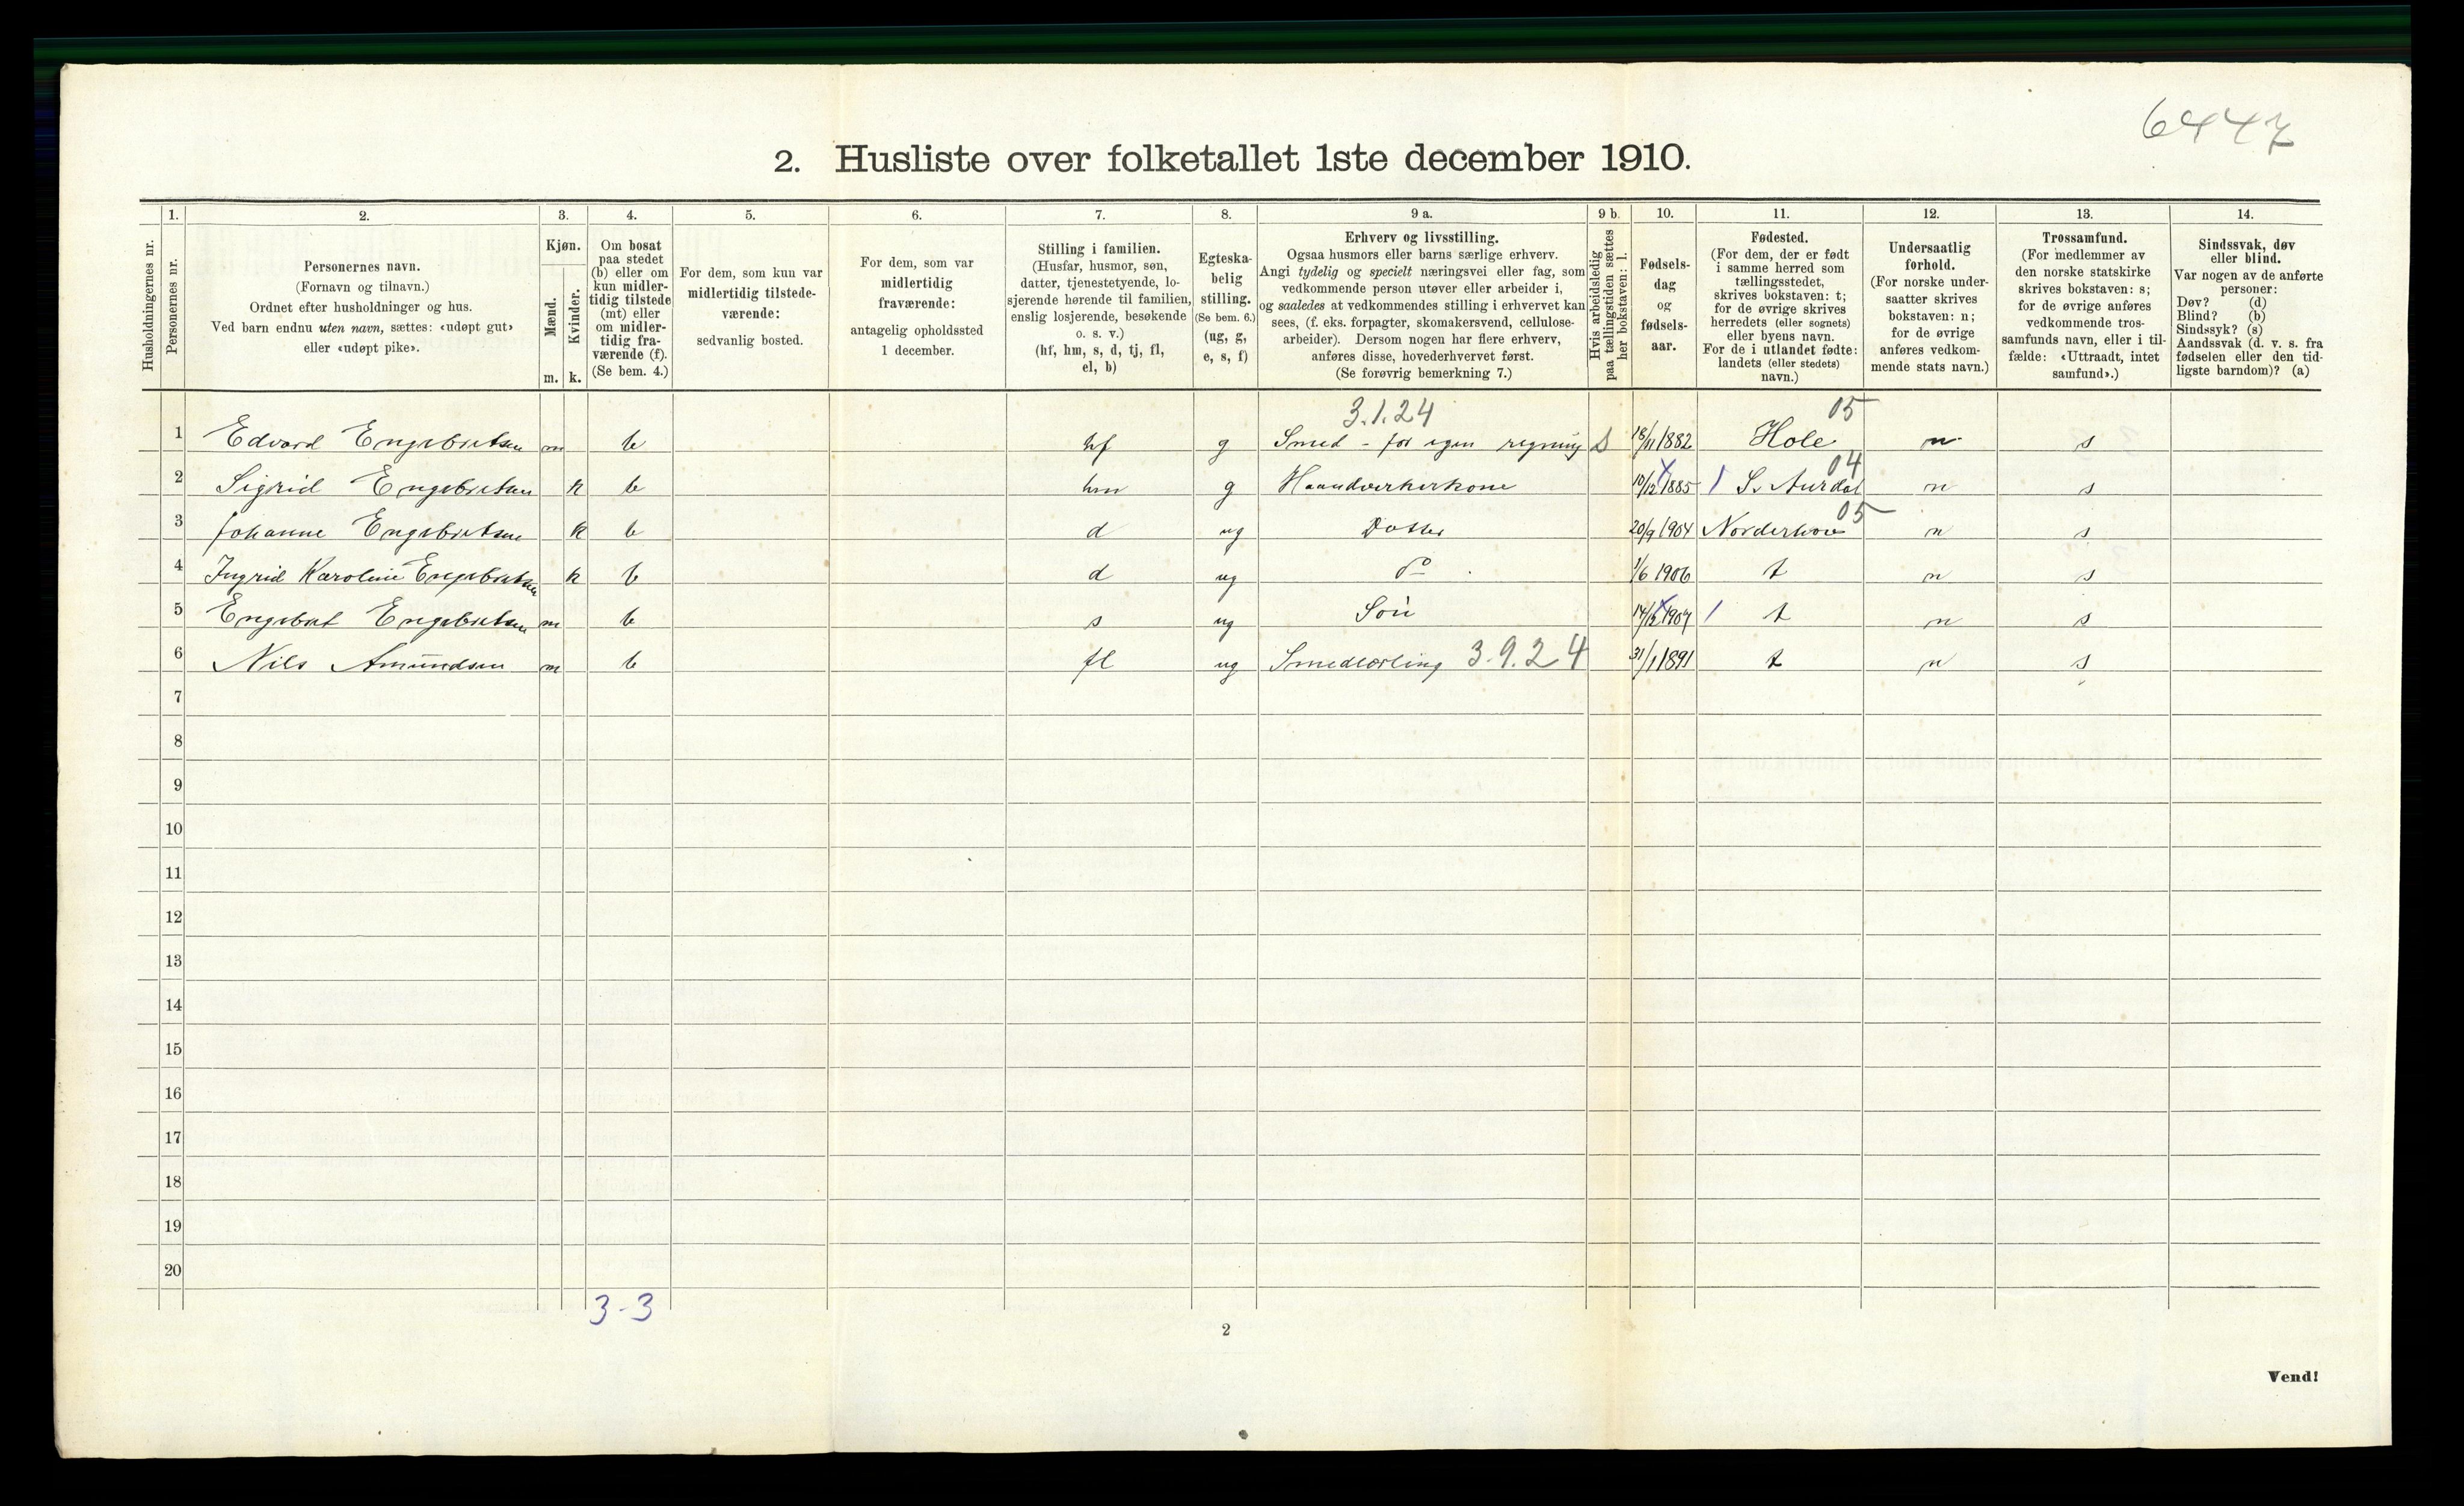 6447
2. Husliste over folketallet 1ste december 1910.
1. 2. 3. 4. 5. 6. 7. 8. 9 a. 9 b. 10. 11. 12. 13. 14.
Husholdningernes nr.
Personernes nr.
Personernes navn.
(Fornavn og tilnavn.)
Ordnet efter husholdninger og hus.
Ved barn endnu uten navn, sættes: «udøpt gut»
eller «udøpt pike».
Kjøn.
Mænd.
Kvinder.
m. k.
Om bosat
paa stedet
(b) eller om
kun midler-
tidig tilstede
(mt) eller
om midler-
tidig fra-
værende (f).
(Se bem. 4.)
For dem, som kun var
midlertidig tilstede-
værende:
sedvanlig bosted.
For dem, som var
midlertidig
fraværende:
antagelig opholdssted
1 december.
Stilling i familien.
(Husfar, husmor, søn,
datter, tjenestetyende, lo-
sjerende hørende til familien,
enslig losjerende, besøkende
o. s. v.)
(hf, hm, s, d, tj, fl,
el, b)
Egteska-
belig
stilling.
(Se bem. 6.)
(ug, g,
e, s, f)
Erhverv og livsstilling.
Ogsaa husmors eller barns særlige erhverv.
Angi tydelig og specielt næringsvei eller fag, som
vedkommende person utøver eller arbeider i,
og saaledes at vedkommendes stilling i erhvervet kan
sees, (f. eks. forpagter, skomakersvend, cellulose-
arbeider). Dersom nogen har flere erhverv,
anføres disse, hovederhvervet først.
(Se forøvrig bemerkning 7.)
Hvis arbeidsledig
paa tællingstiden sættes
her bokstaven: l.
Fødsels-
dag
og
fødsels-
aar.
Fødested.
(For dem, der er født
i samme herred som
tællingsstedet,
skrives bokstaven: t;
for de øvrige skrives
herredets (eller sognets)
eller byens navn.
For de i utlandet fødte:
landets (eller stedets)
navn.)
Undersaatlig
forhold.
(For norske under-
saatter skrives
bokstaven: n;
for de øvrige
anføres vedkom-
mende stats navn.)
Trossamfund.
(For medlemmer av
den norske statskirke
skrives bokstaven: s;
for de øvrige anføres
vedkommende tros-
samfunds navn, eller i til-
fælde: «Uttraadt, intet
samfund».)
Sindssvak, døv
eller blind.
Var nogen av de anførte
personer:
Døv? (d)
Blind? (b)
Sindssyk? (s)
Aandssvak (d. v. s. fra
fødselen eller den tid-
ligste barndom)? (a)
3.1.24 05
1 Edvard Engebretsen m b hf g Smed - for egen regning S 18/11 1882 Hole n s
04
2 Sigrid Engebretsen k b hm g Haandverkerkone 10/12 1885 1 S. Aurdal n s
05
3 Johanne Engebretsen k b d ug Datter 20/9 1904 Norderhov n s
4 Ingrid Karoline Engebretsen k b d ug do 1/6 1906 t n s
5 Engebret Engebretsen m b s ug Søn 14/12 1907 1 t n s
6 Nils Amundsen m b fl ug Smedlærling 3.9.24 31/1 1891 t n s
7
8
9
10
11
12
13
14
15
16
17
18
19
20
3-3
2
Vend!